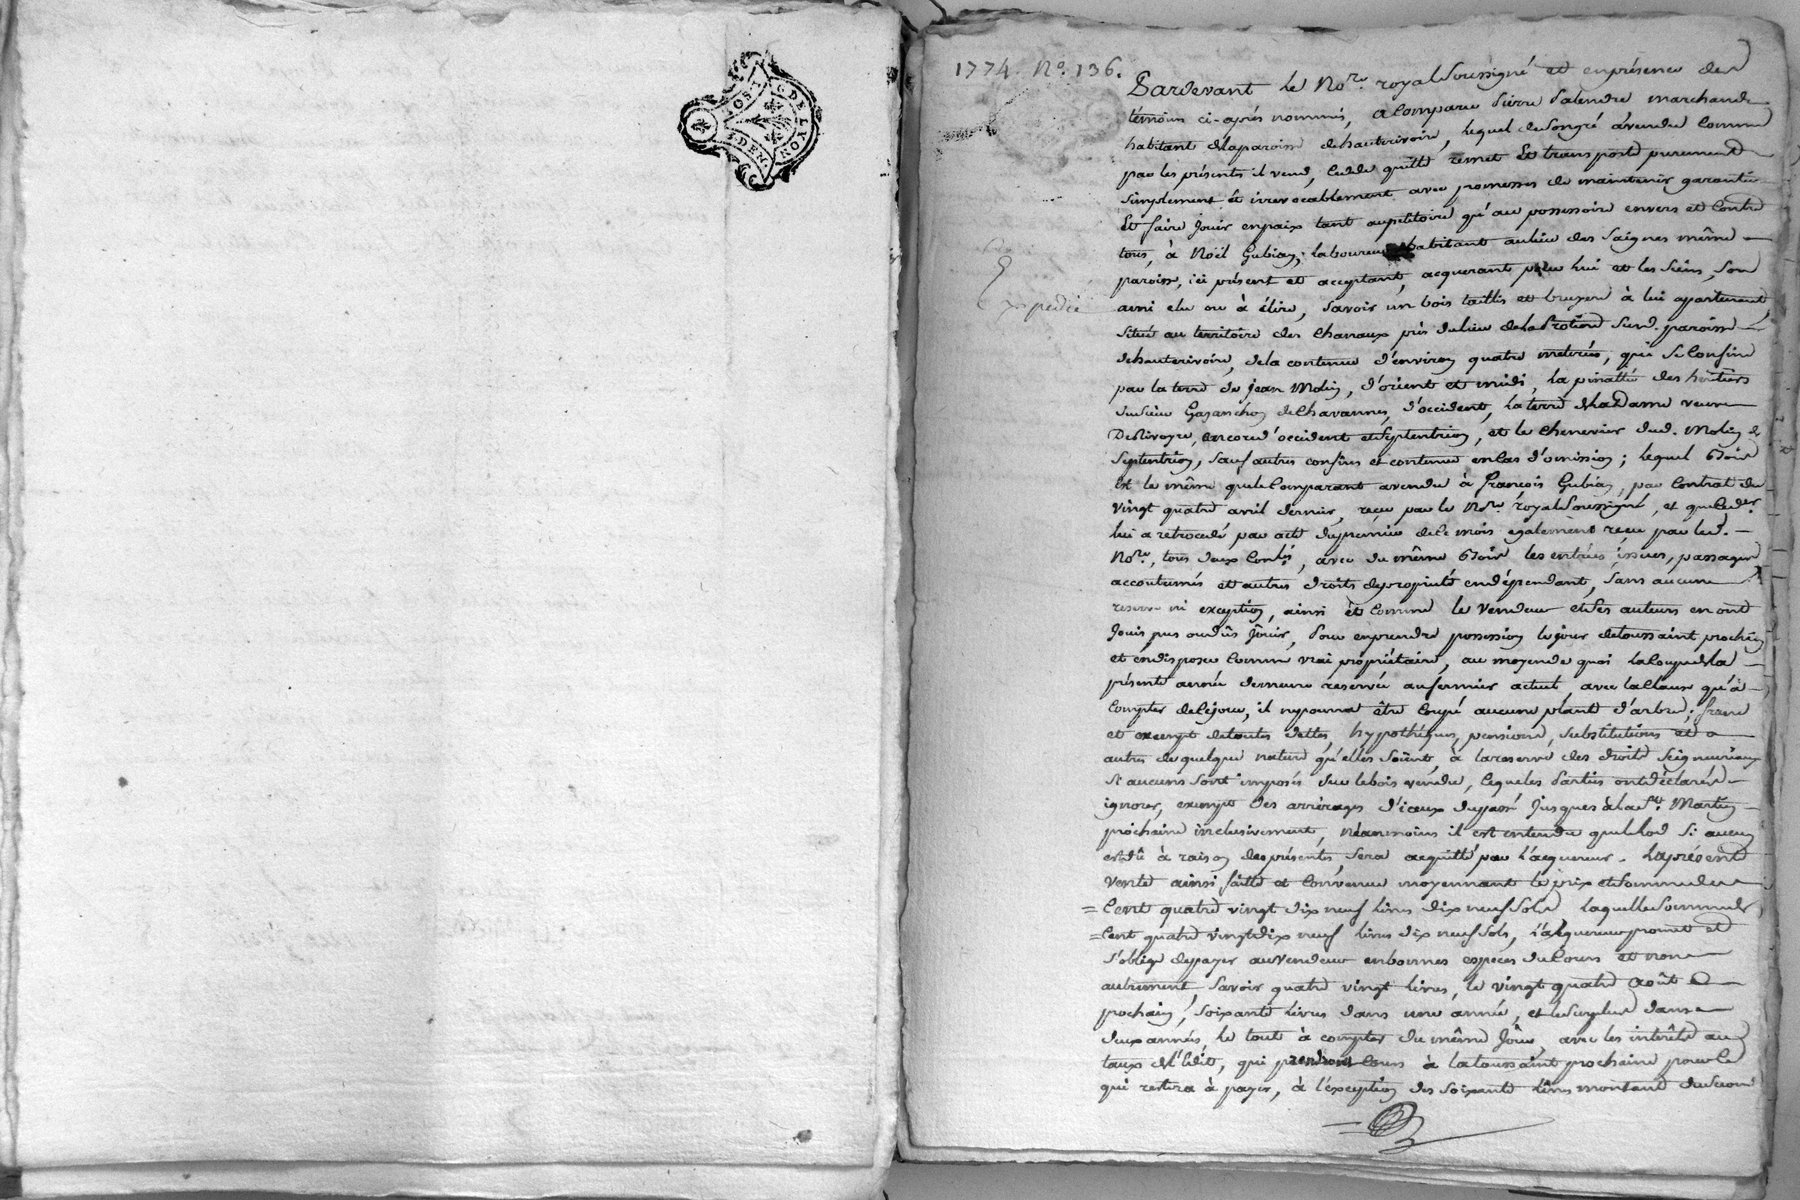 2 SOLS. G. DE LYON. 8. DEN.
1774. No. 136.
Pardevant le No.re royal Soussigné et en présence des
témoins ci-après nommés, a Comparu Pierre Salendre marchand
habitant de la paroisse de hauterivoire, lequel de Songré a vendu Comme
par les présentes il vend, Cedde quitte remet Et transporte purement
Simplement et irrevocablement avec promesses de maintenir garantir
Et faire jouir en paix tant au petitoire qu'au possessoire envers et Contre
tous, à Noël Gubian, laboureur habitant au lieu des Saignes même
paroisse, ici présent et acceptant, acquerant pour lui et les Siens, Son
ami elu ou à élire, Savoir un bois taillis et bruyere à lui apartenent,
Situé au territoire des Chanaux près du lieu de la Frotiere Susd. paroisse
de hauterivoire, de la contenue d'environ quatre metérées, qui Se Confine
par la terre de Jean Molin, d'orient et midi, la pinatte des héritiers
du Sieur Gasanchon de Chavannes, d'occident, la terre de la Dame veuve
De Rivoyre, encore d'occident et Septentrion, et le Chenevier dud. Molin de
Septentrion, Sauf autres confins et contenue en Cas d'omission; lequel Bois
Est le même que le Comparant a vendu à françois Gubian, par Contrat du
Vingt quatre avril dernier, reçu par le No.re royal Soussigné, et que led.er
lui a retrocedé par acte du premier de Ce mois également reçu par led.
No.re, tous deux Contlés, avec du même Bois les entrées issues, passages
accoutumés et autres droits de propriété en dépendant, Sans aucune
reserve ni exception, ainsi et Comme le Vendeur et Ses auteurs en ont
Jouis pus ou dûs Jouir, Pour en prendre possession le jour de toussaint prochein
et en disposer Comme vrai propriétaire, au moyen de quoi la Coupe de la
présente année demeure reservée au fermier actuel, avec la Clause qu'à
Compter de Ce jour, il ny pourra être Coupé aucune plante d'arbre; franc
et exempt de toutes dettes, hypothéques, pensions, Substitutions et
autres de quelque nature qu'elles Soient, à la reserve des droits Seigneuriaux
Si aucuns Sont imposés Sur le bois vendu, lequeles Parties ont déclarés
ignorer, exempt des arrérages d'iceux du passé Jusques à la St. Martin
prochaine inclusivement, Néanmoins il est entendu que le lod Si aucun
est dû à raison des présentes, Sera acquitté par l'acquereur. La présente
Vente ainsi faitte et Convenue moyennant le prix et Somme de
Cent quatre vingt dix neuf livres dix neuf Sols, laquelle Somme de
Cent quatre vingt dix neuf livres dix neuf Sols, l'acquereur promet et
S'oblige de payer au Vendeur en bonnes espèces du Cours et non
autrement, Savoir quatre vingt livres, le vingt quatre Août
prochain, Soixante livres dans une année, et le Surplus dans
deux années, le tout à compter du même Jour, avec les intérêts au
taux de l'Edit, qui prendront Cours à la toussaint prochaine pour Ce
qui restera à payer, à l'exception des Soixante livres montant du Second
Expedié